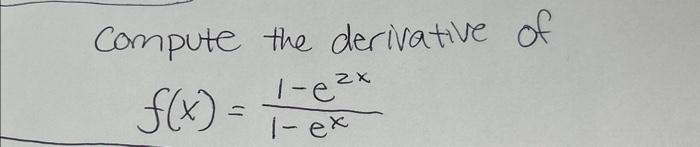 Compute the derivative of
f(x) = \frac{1-e^{2x}}{1-e^{x}}